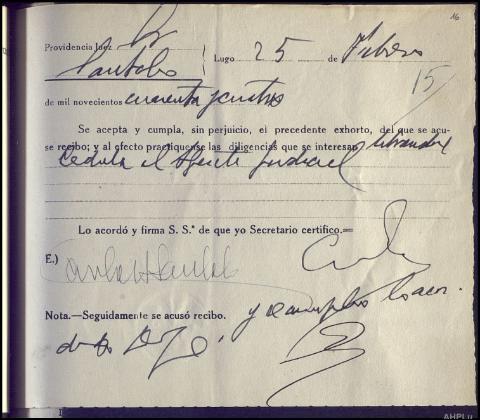 16
Providencia Juez Sr
Santalo
Lugo 25 de Febrero
15
de mil novecientos cuarenta y cuatro
Se acepta y cumpla, sin perjuicio, el precedente exhorto, del que se acu-
se recibo; y al efecto practíquense las diligencias que se interesan librándose
cédula al Agente Judicial
Lo acordó y firma S. S.ª de que yo Secretario certifico.=
E.)
Nota.—Seguidamente se acusó recibo. y se cumple lo acor-
dado. Doy fe,
AHPLu